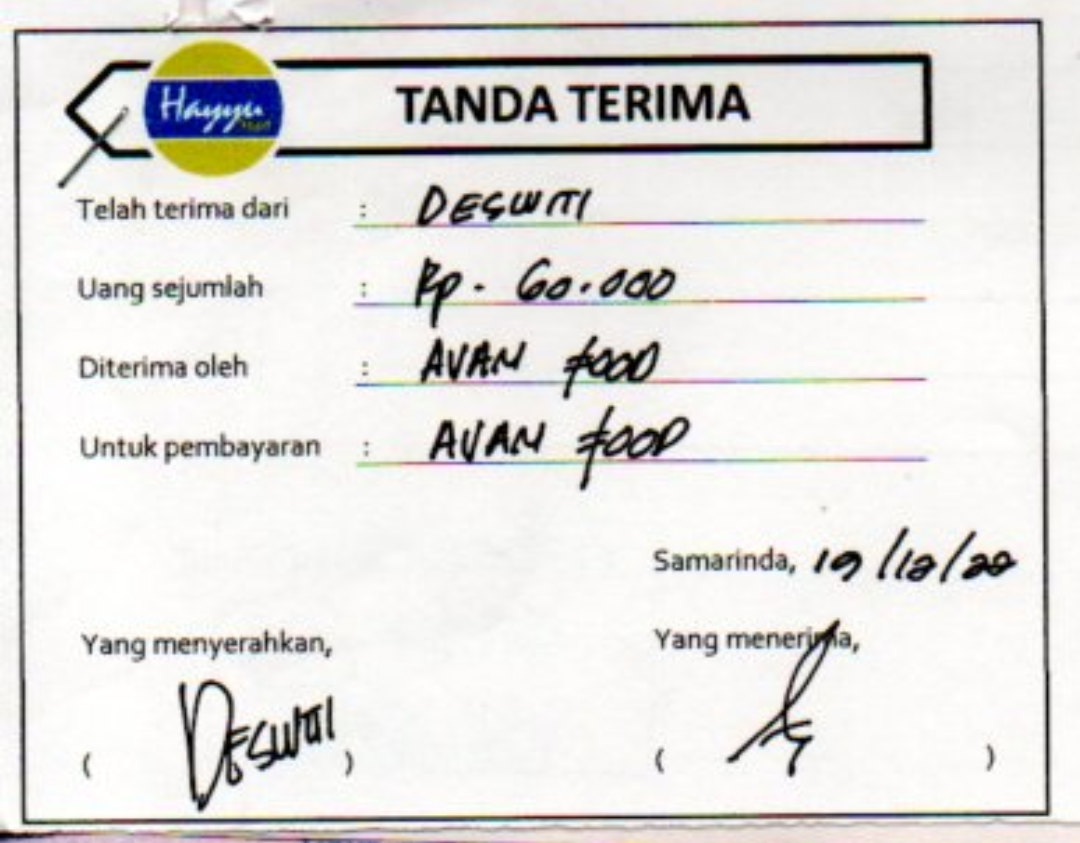 Hayyu Mart
TANDA TERIMA
Telah terima dari : DESWITI
Uang sejumlah : Rp. 60.000
Diterima oleh : AVAN FOOD
Untuk pembayaran : AVAN FOOD
Samarinda, 19/12/22
Yang menyerahkan, Yang menerima,
( DESWITI ) ( )